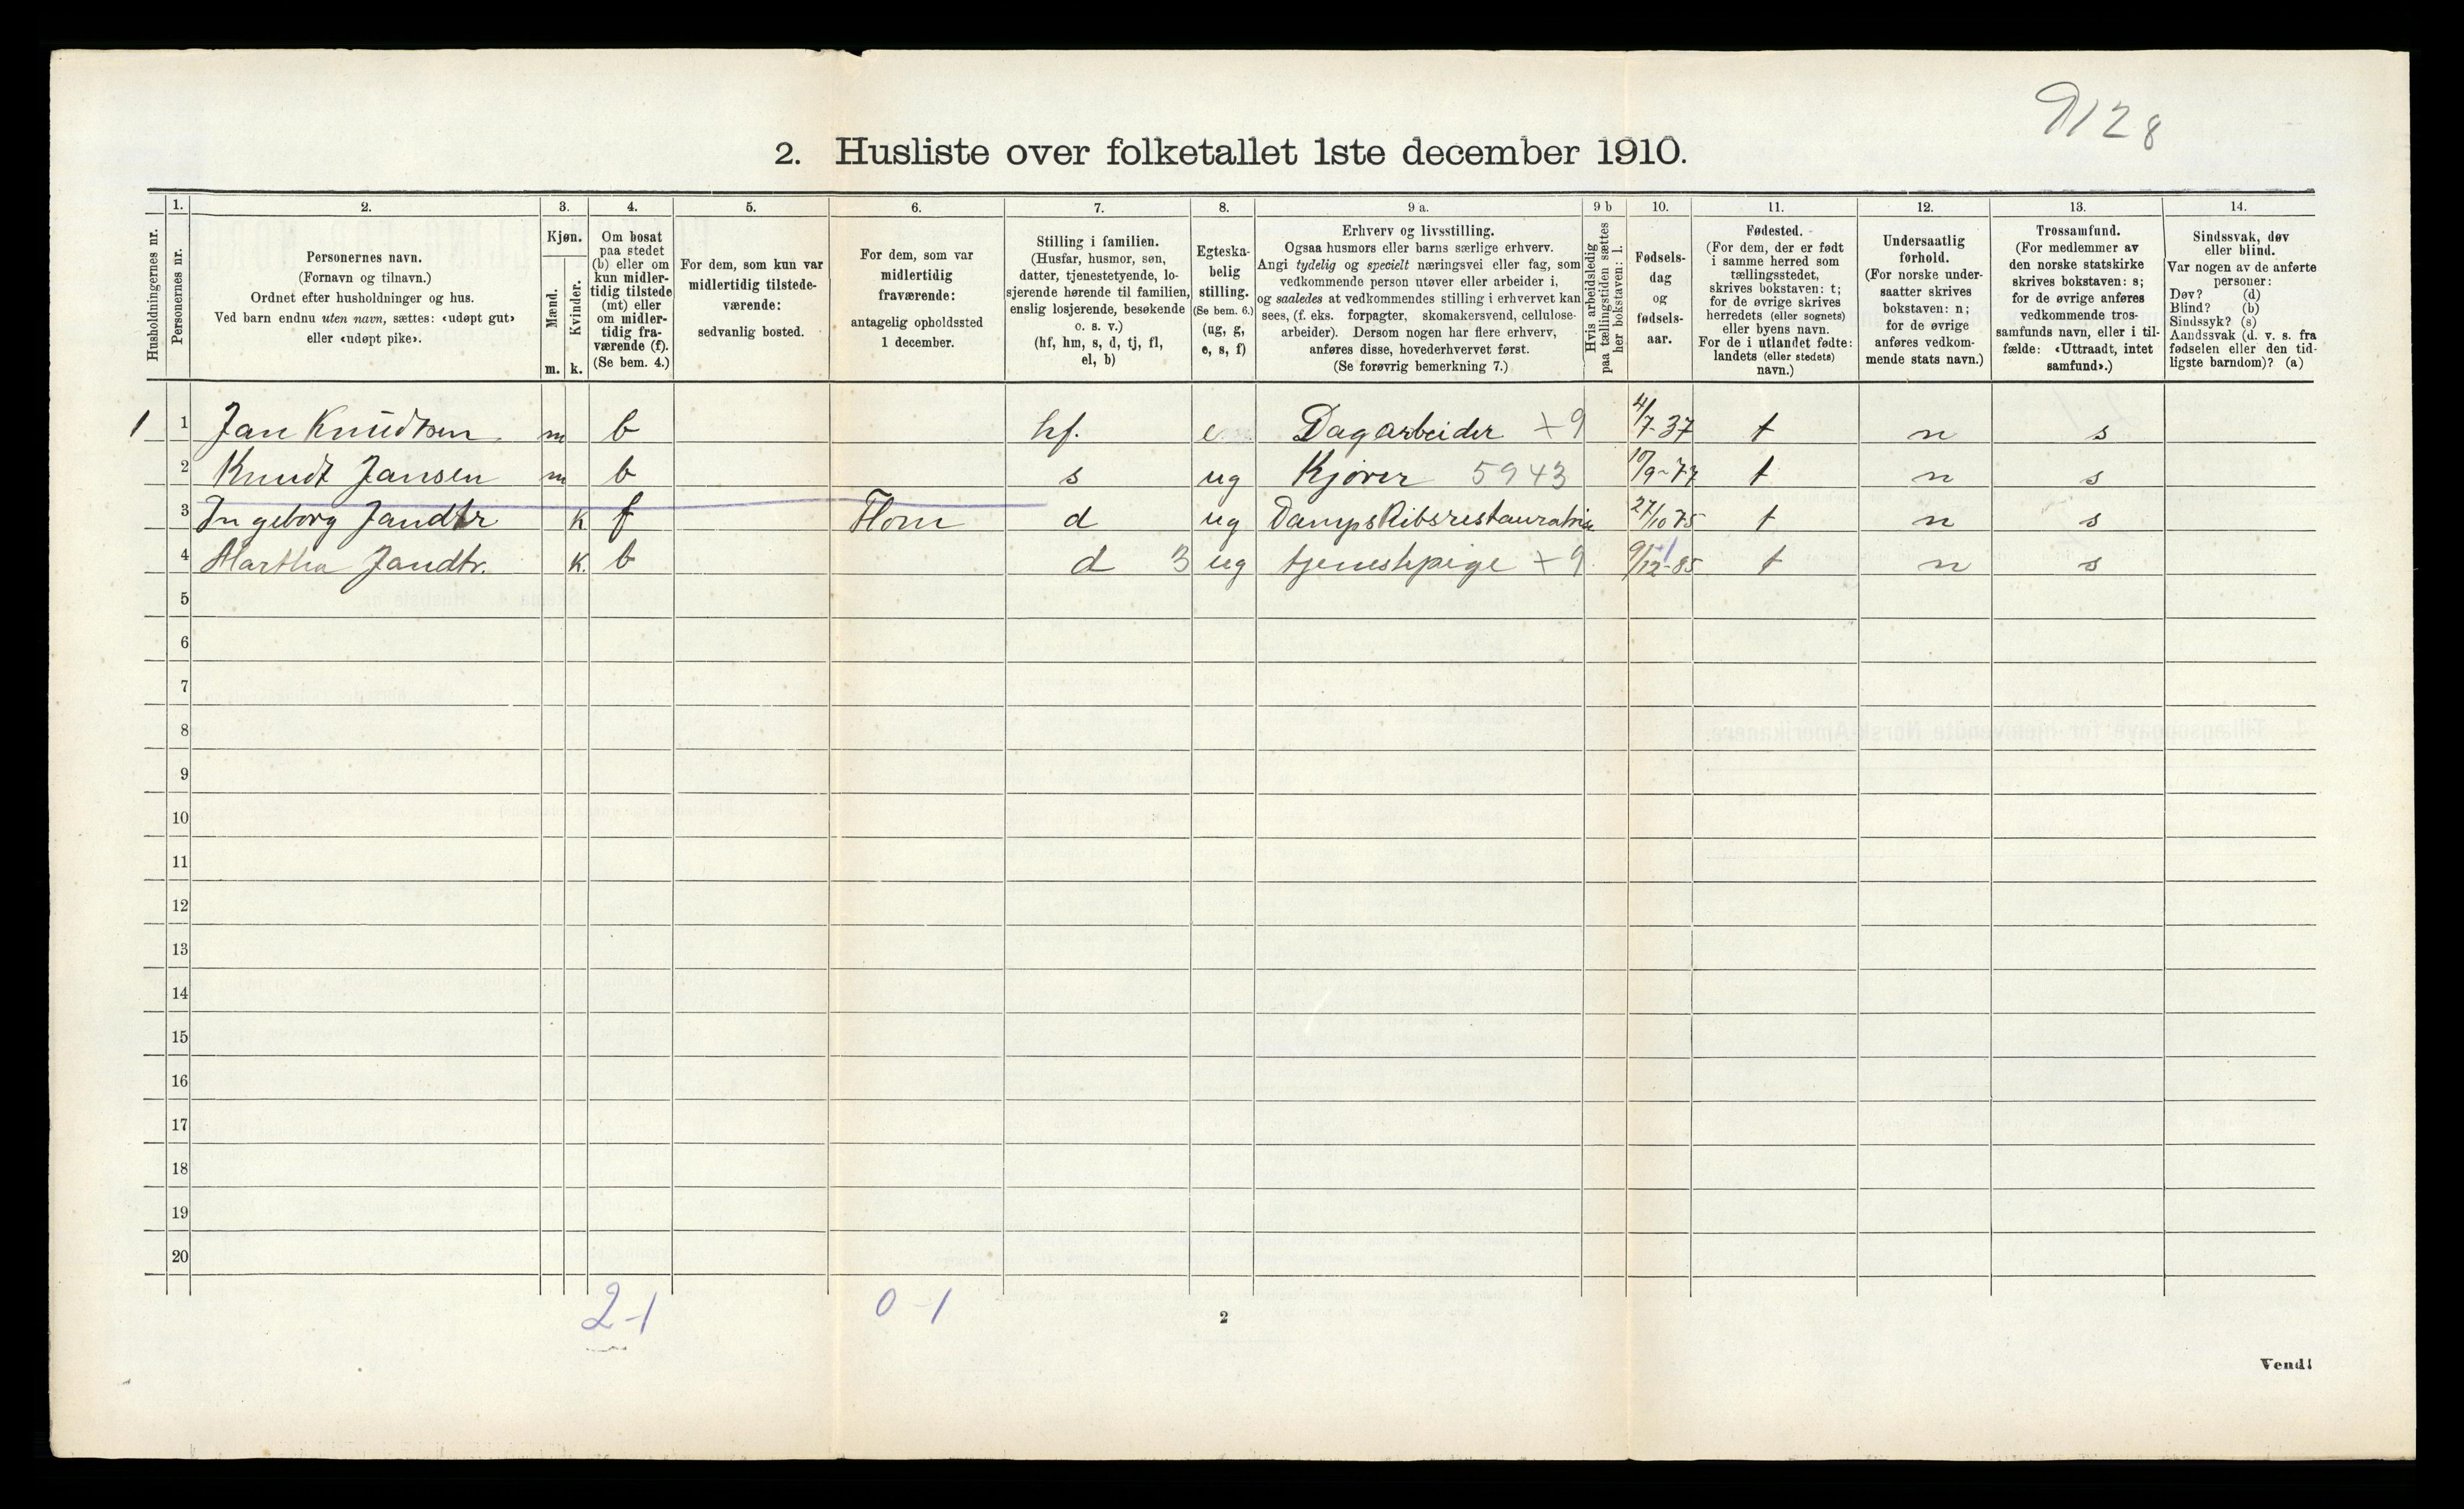 9128
2. Husliste over folketallet 1ste december 1910.
Husholdningernes nr.
1. Personernes nr.
2. Personernes navn. (Fornavn og tilnavn.) Ordnet efter husholdninger og hus. Ved barn endnu uten navn, sættes: «udøpt gut» eller «udøpt pike».
3. Kjøn. Mænd. m. Kvinder. k.
4. Om bosat paa stedet (b) eller om kun midlertidig tilstede (mt) eller om midlertidig fraværende (f). (Se bem. 4.)
5. For dem, som kun var midlertidig tilstedeværende: sedvanlig bosted.
6. For dem, som var midlertidig fraværende: antagelig opholdssted 1 december.
7. Stilling i familien. (Husfar, husmor, søn, datter, tjenestetyende, losjerende hørende til familien, enslig losjerende, besøkende o. s. v.) (hf, hm, s, d, tj, fl, el, b)
8. Egteskabelig stilling. (Se bem. 6.) (ug, g, e, s, f)
9 a. Erhverv og livsstilling. Ogsaa husmors eller barns særlige erhverv. Angi tydelig og specielt næringsvei eller fag, som vedkommende person utøver eller arbeider i, og saaledes at vedkommendes stilling i erhvervet kan sees, (f. eks. forpagter, skomakersvend, cellulosearbeider). Dersom nogen har flere erhverv, anføres disse, hovederhvervet først. (Se forøvrig bemerkning 7.)
9 b Hvis arbeidsledig paa tællingstiden sættes her bokstaven: l.
10. Fødselsdag og fødselsaar.
11. Fødested. (For dem, der er født i samme herred som tællingsstedet, skrives bokstaven: t; for de øvrige skrives herredets (eller sognets) eller byens navn. For de i utlandet fødte: landets (eller stedets) navn.)
12. Undersaatlig forhold. (For norske undersaatter skrives bokstaven: n; for de øvrige anføres vedkommende stats navn.)
13. Trossamfund. (For medlemmer av den norske statskirke skrives bokstaven: s; for de øvrige anføres vedkommende trossamfunds navn, eller i tilfælde: «Uttraadt, intet samfund».)
14. Sindssvak, døv eller blind. Var nogen av de anførte personer: Døv? (d) Blind? (b) Sindssyk? (s) Aandssvak (d. v. s. fra fødselen eller den tidligste barndom)? (a)
1 1 Jan Knudtsen m b hf. e Dagarbeider +9 4/7-37 t n s
2 Knudt Jansen m b s ug Kjører 5943 t n s
3 Ingeborg Jandtr k f Flom d ug 27/10 75 t n s
4 Martha Jandtr. k. b d 3 ug tjenestpige +9 9/12-85 t n s
5
6
7
8
9
10
11
12
13
14
15
16
17
18
19
20
2-1 0-1
2
Vend!